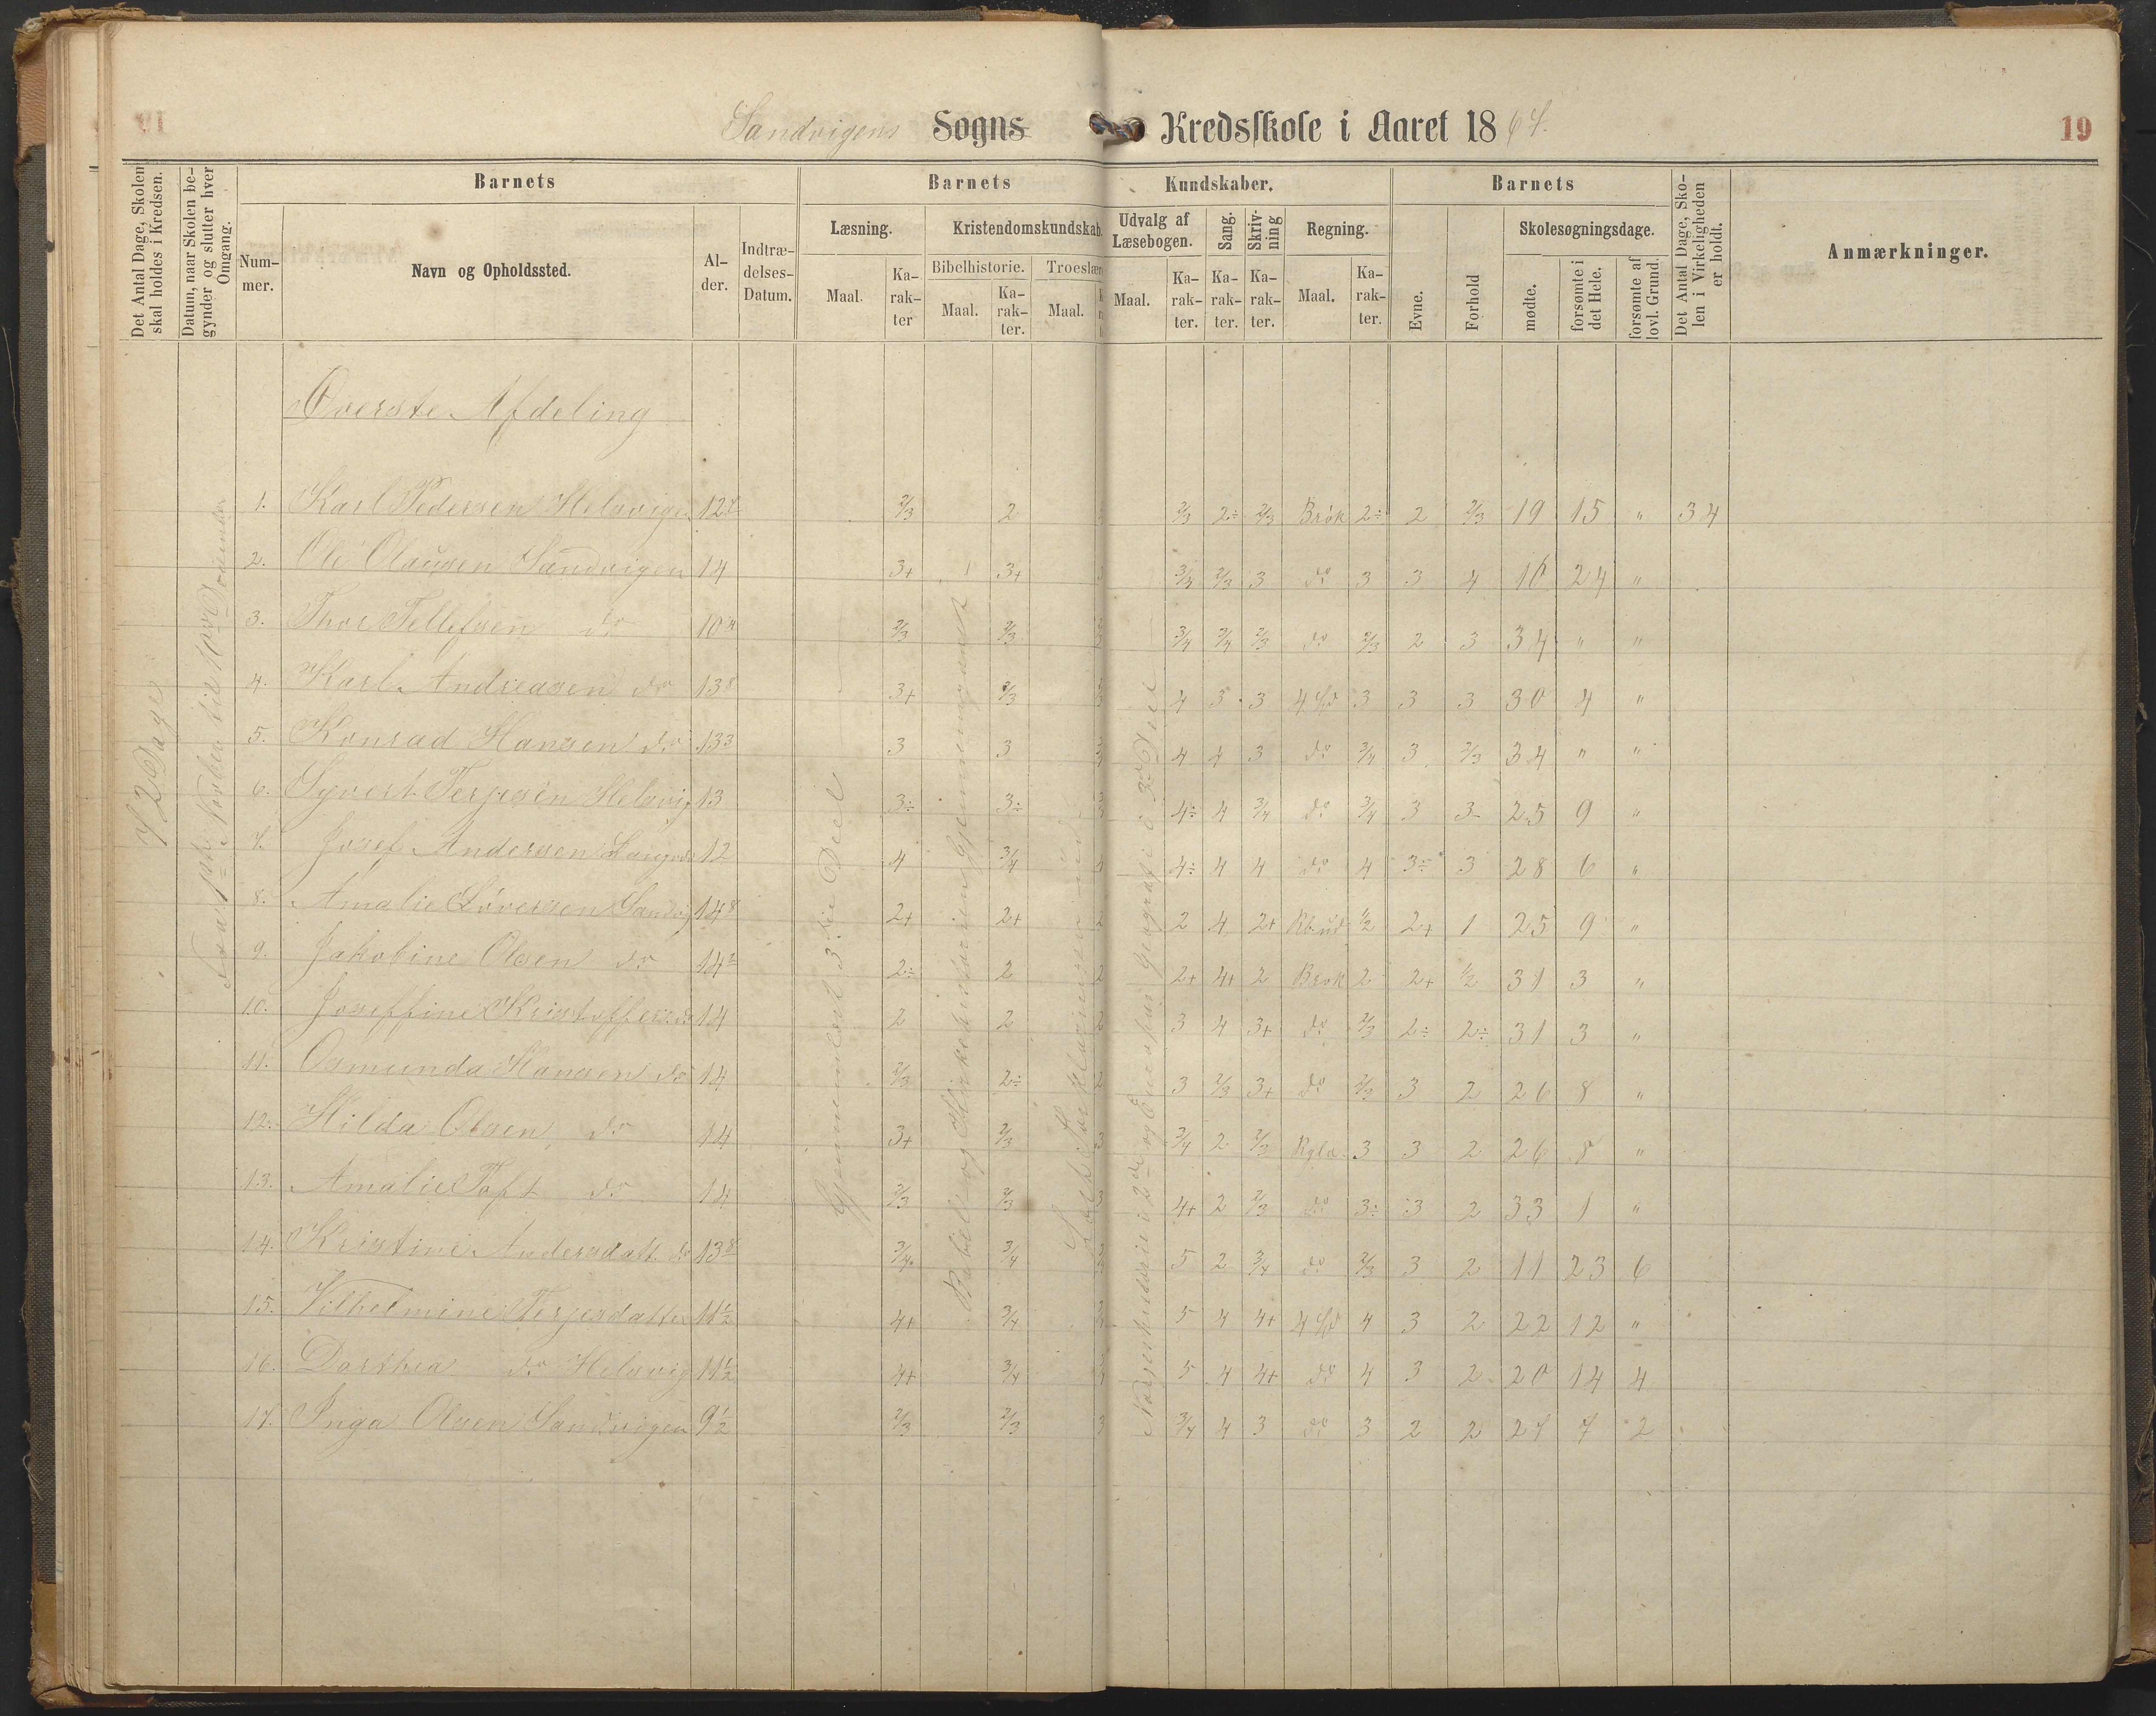 Sandvigens Sogns Kredsskole i Aaret 1867.
19
Det Antal Dage, Skolen skal holdes i Kredsen.
Datum, naar Skolen begynder og slutter hver Omgang.
Barnets
Barnets
Kundskaber.
Barnets
Det Antal Dage, Skolen i Virkeligheden er holdt.
Anmærkninger.
Nummer.
Navn og Opholdssted.
Alder.
Indtrædelses-Datum.
Læsning.
Kristendomskundskab.
Udvalg af Læsebogen.
Sang.
Skrivning
Regning.
Evne.
Forhold
Skolesøgningsdage.
Maal.
Karakter
Bibelhistorie.
Troeslær
Maal.
Karakter.
Maal.
Maal.
Karakter.
Karakter.
Karakter.
Maal.
Karakter.
mødte.
forsømte i det Hele.
forsømte af lovl. Grund.
Øverste Afdeling
72 Dage
Gjennemlæst 3die Deel
Bibel og Kirkehistorien gjennemgaaet
1. Karl Pedersen Helsvigen 2/3 2 2/3 2÷ 2/3 Brøk 2÷ 2 2/3 19 15 " 34
2. Ole Olausen Sandvigen 14 3+ 3+ 3/4 2/3 3 do 3 3 4 10 24 "
3. Thor Tellefsen do 2/3 2/3 3/4 3/4 2/3 do 2/3 2 3 34 " "
4. Karl Andreasen do 13 8 3+ 2/3 4 3 3 3 3 3 30 4 "
5. Konrad Hansen do 13 3 3 3 4 4 3 do 3/4 3 2/3 34 " "
6. Syvert Terjesen Helsvig 13 3÷ 3÷ 4÷ 4 3/4 do 3/4 3 3 25 9 "
7. Josef Andersen 12 4 3/4 4÷ 4 4 do 4 3÷ 3 28 6 "
8. Amalie Sørensen Sandvig 14 8 2+ 2+ 2 4 2+ 1/2 2+ 1 25 9 "
9. Jakobine Olsen do 2÷ 2 2+ 4+ 2 Brøk 2 2+ 1/2 31 3 "
10. Joseffine Kristoffers. do 14 2 2 3 4 3+ do 2/3 2÷ 2÷ 31 3 "
11. Osmunda Hansen do 14 2/3 2÷ 3 2/3 3+ do 2/3 3 2 26 8 "
12. Hilda Olsen do 14 3+ 2/3 3/4 2 2/3 3 3 2 26 8 "
13. Amalie Toft do 14 2/3 2/3 4+ 2 2/3 do 3÷ 3 2 33 1 "
14. Kristine Andersdatt. do 13 8 3/4 3/4 5 2 3/4 do 2/3 3 2 11 23 6
15. Vilhelmine Terjesdatter 11 1/2 4+ 3/4 5 4 4+ 4 3 2 22 12 "
16. Dorthea do Helsvig 11 1/2 4+ 3/4 5 4 4+ do 4 3 2 20 14 4
17. Inga Olsen Sandvigen 9 1/2 2/3 2/3 3 3/4 4 3 do 3 2 2 27 7 2